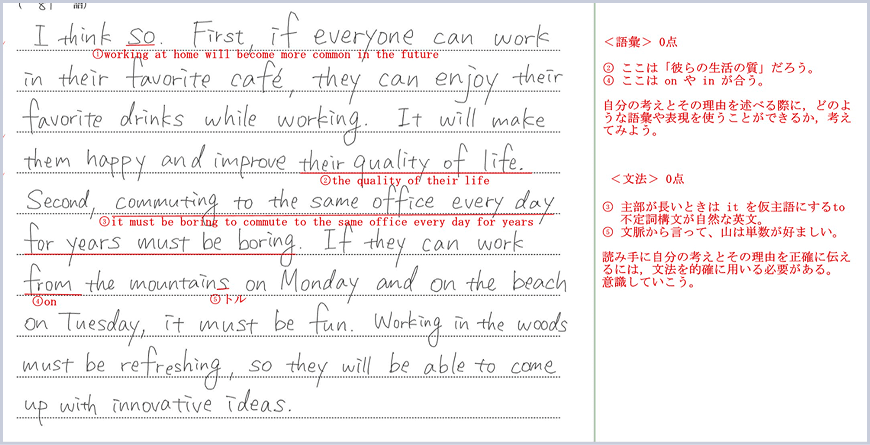 語)
I think so. First, if everyone can work
①working at home will become more common in the future
in their favorite café, they can enjoy their
favorite drinks while working. It will make
them happy and improve their quality of life.
②the quality of their life
Second, commuting to the same office every day
③it must be boring to commute to the same office every day for years
for years must be boring. If they can work
from the mountains on Monday and on the beach
④on ⑤トル
on Tuesday, it must be fun. Working in the woods
must be refreshing, so they will be able to come
up with innovative ideas.
＜語彙＞ 0点
② ここは「彼らの生活の質」だろう。
④ ここは on や in が合う。
自分の考えとその理由を述べる際に，どのよ
うな語彙や表現を使うことができるか，考え
てみよう。
＜文法＞ 0点
③ 主部が長いときは it を仮主語にするto
不定詞構文が自然な英文。
⑤ 文脈から言って、山は単数が好ましい。
読み手に自分の考えとその理由を正確に伝え
るには，文法を的確に用いる必要がある。
意識していこう。